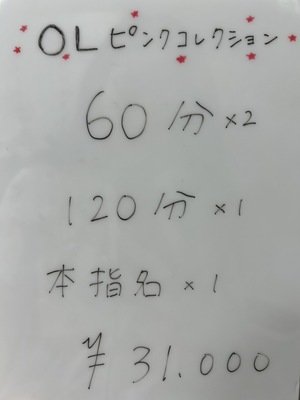 OLピンクコレクション
60分×2
120分×1
本指名×1
¥31.000